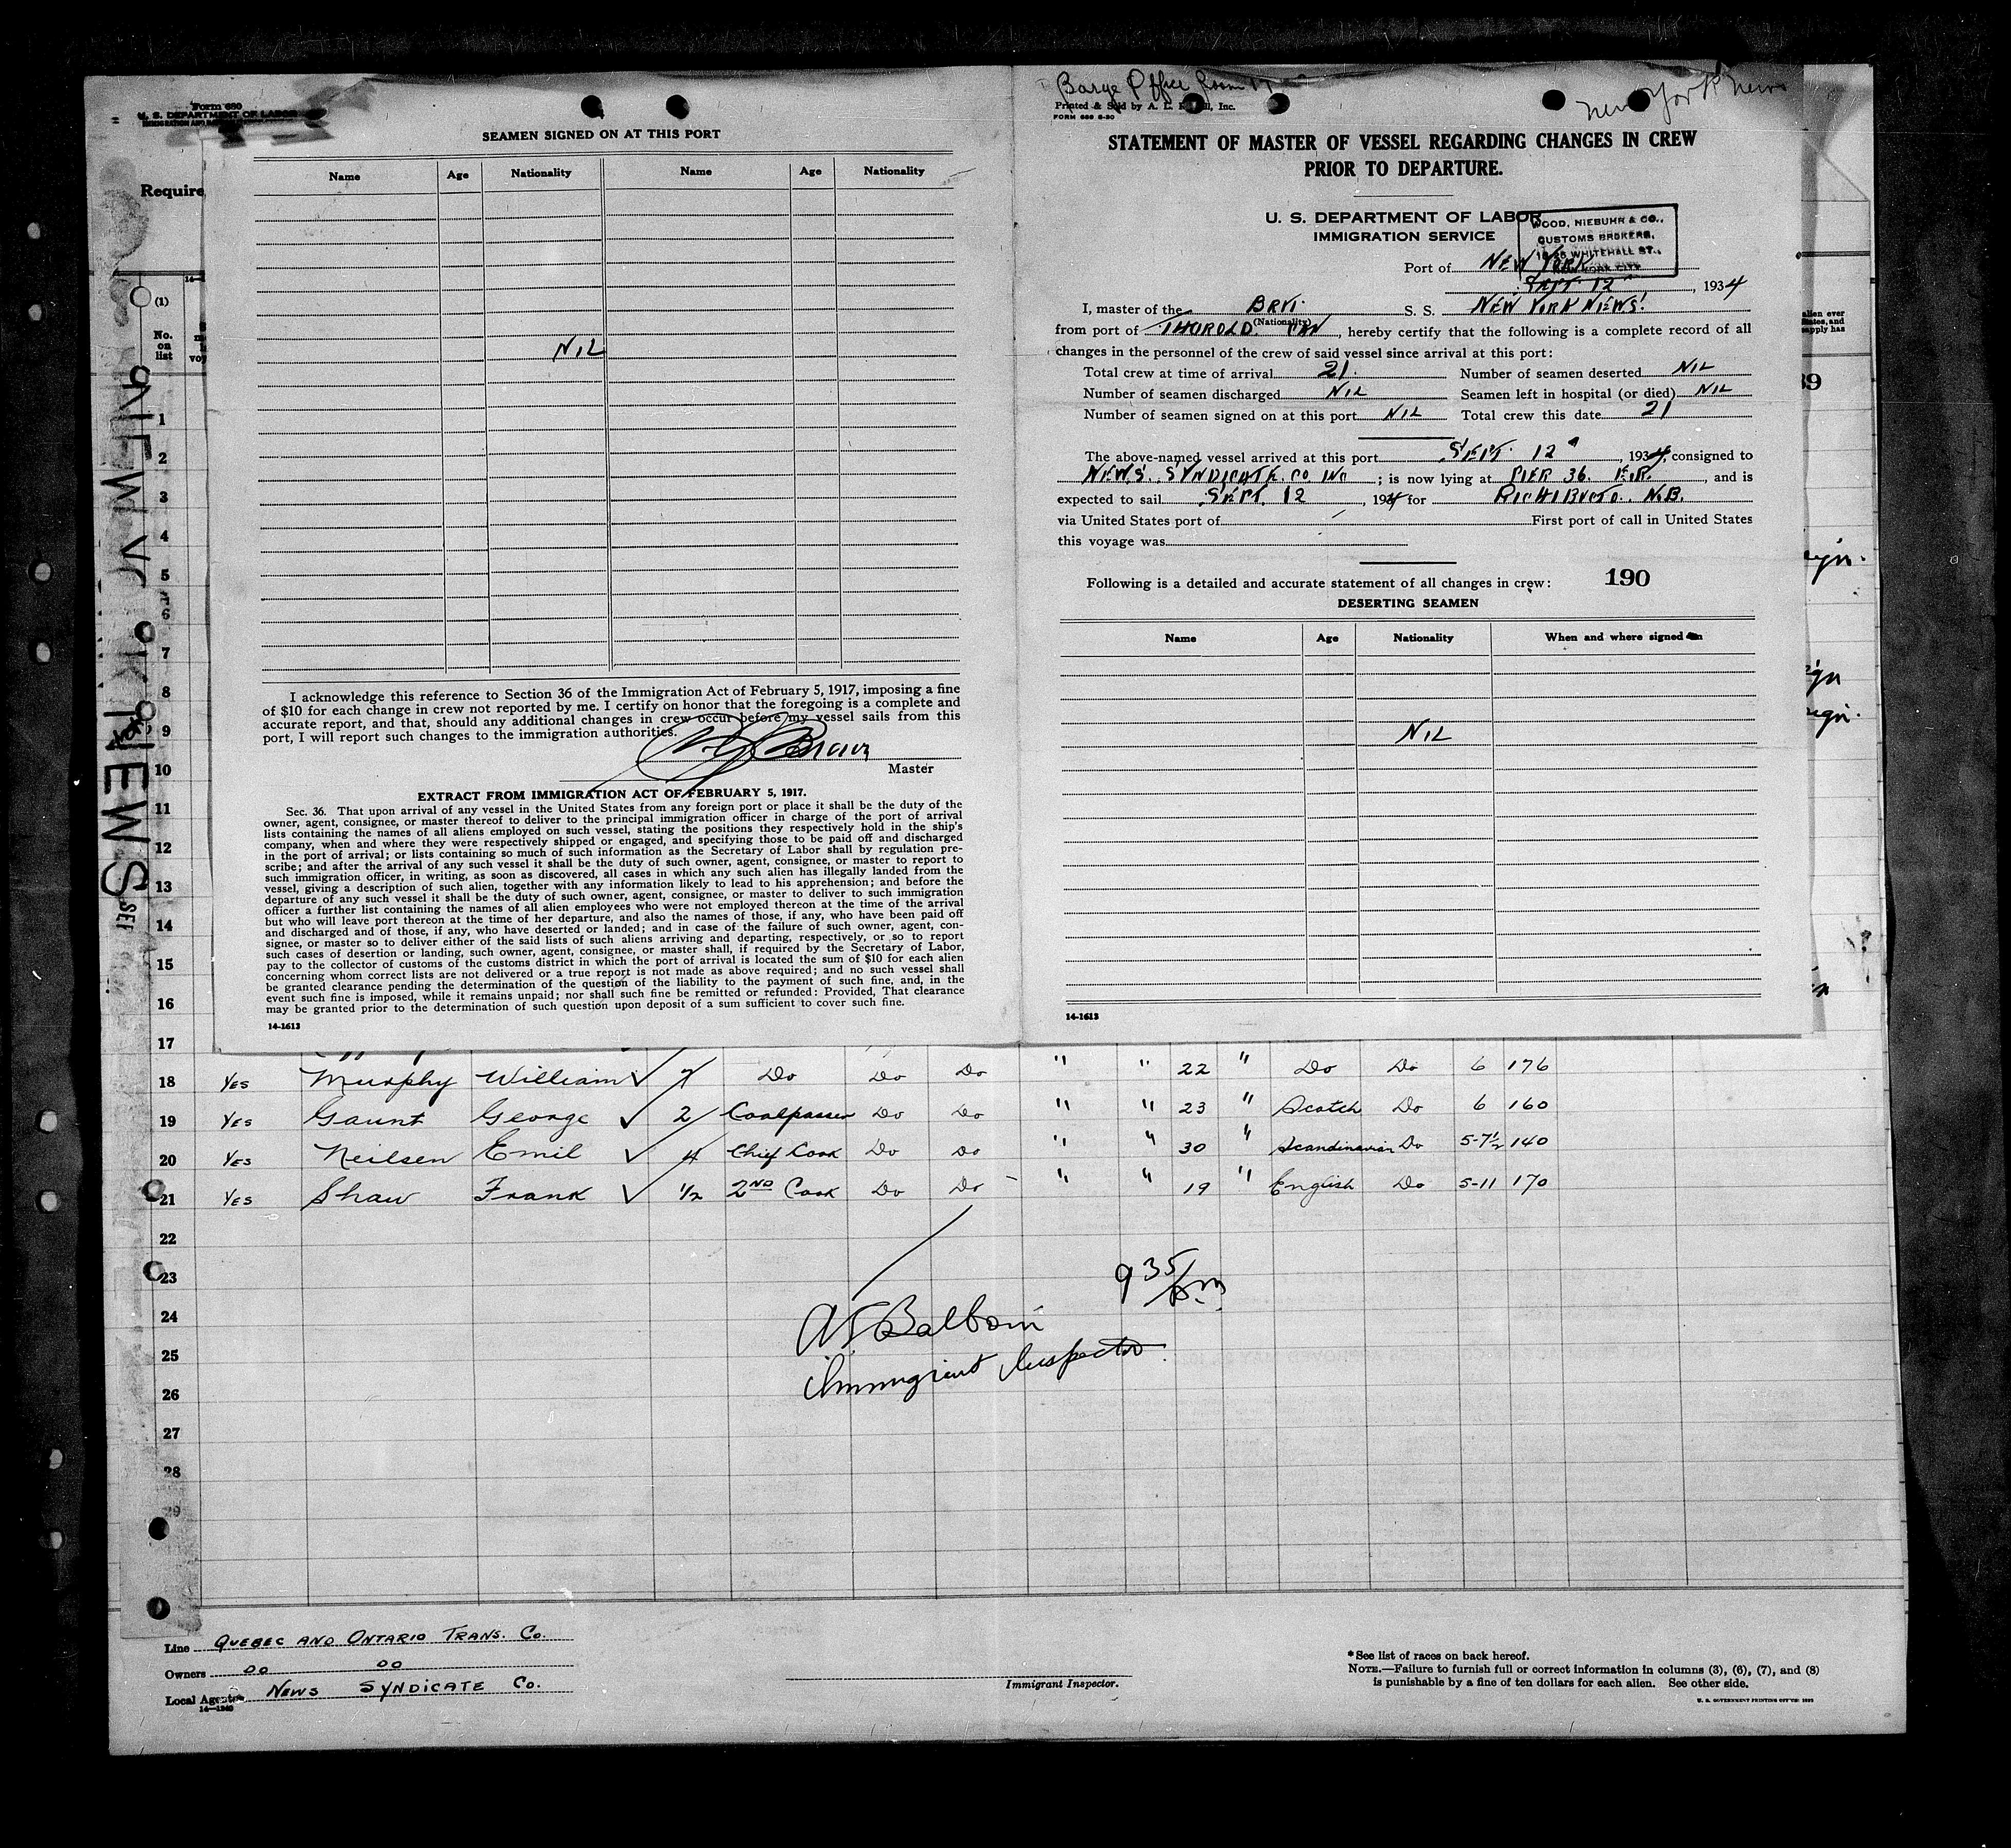 Form 680
U. S. DEPARTMENT OF LABOR
Require
(1)
No. on list
SEAMEN SIGNED ON AT THIS PORT
Name Age Nationality Name Age Nationality
NIL
I acknowledge this reference to Section 36 of the Immigration Act of February 5, 1917, imposing a fine
of $10 for each change in crew not reported by me. I certify on honor that the foregoing is a complete and
accurate report, and that, should any additional changes in crew occur before my vessel sails from this
port, I will report such changes to the immigration authorities.
Master
EXTRACT FROM IMMIGRATION ACT OF FEBRUARY 5, 1917.
Sec. 36. That upon arrival of any vessel in the United States from any foreign port or place it shall be the duty of the
owner, agent, consignee, or master thereof to deliver to the principal immigration officer in charge of the port of arrival
lists containing the names of all aliens employed on such vessel, stating the positions they respectively hold in the ship's
company, when and where they were respectively shipped or engaged, and specifying those to be paid off and discharged
in the port of arrival; or lists containing so much of such information as the Secretary of Labor shall by regulation pre-
scribe; and after the arrival of any such vessel it shall be the duty of such owner, agent, consignee, or master to report to
such immigration officer, in writing, as soon as discovered, all cases in which any such alien has illegally landed from the
vessel, giving a description of such alien, together with any information likely to lead to his apprehension; and before the
departure of any such vessel it shall be the duty of such owner, agent, consignee, or master to deliver to such immigration
officer a further list containing the names of all alien employees who were not employed thereon at the time of the arrival
but who will leave port thereon at the time of her departure, and also the names of those, if any, who have been paid off
and discharged and of those, if any, who have deserted or landed; and in case of the failure of such owner, agent, con-
signee, or master so to deliver either of the said lists of such aliens arriving and departing, respectively, or so to report
such cases of desertion or landing, such owner, agent, consignee, or master shall, if required by the Secretary of Labor,
pay to the collector of customs of the customs district in which the port of arrival is located the sum of $10 for each alien
concerning whom correct lists are not delivered or a true report is not made as above required; and no such vessel shall
be granted clearance pending the determination of the question of the liability to the payment of such fine, and, in the
event such fine is imposed, while it remains unpaid; nor shall such fine be remitted or refunded: Provided, That clearance
may be granted prior to the determination of such question upon deposit of a sum sufficient to cover such fine.
14-1613
Barge Office Room
New York News
Printed & Sold by A. L. Inc.
FORM 689 6-30
STATEMENT OF MASTER OF VESSEL REGARDING CHANGES IN CREW
PRIOR TO DEPARTURE.
U. S. DEPARTMENT OF LABOR
IMMIGRATION SERVICE
WOOD, NIEBUHR & CO.,
CUSTOMS BROKERS,
WHITEHALL ST.,
NEW YORK CITY
Port of NEW YORK
SEPT. 12, 1934
I, master of the BRIT. S. S. NEW YORK NEWS.
(Nationality)
from port of THOROLD. CAN, hereby certify that the following is a complete record of all
changes in the personnel of the crew of said vessel since arrival at this port:
Total crew at time of arrival 21. Number of seamen deserted NIL
Number of seamen discharged NIL Seamen left in hospital (or died) NIL
Number of seamen signed on at this port NIL Total crew this date 21
The above-named vessel arrived at this port SEPT. 12, 1934, consigned to
NEWS. SYNDICATE. CO INC; is now lying at PIER 36. E.R., and is
expected to sail SEPT. 12, 1934 for RICHIBUCTO. N.B.
via United States port of First port of call in United States
this voyage was
Following is a detailed and accurate statement of all changes in crew: 190
DESERTING SEAMEN
Name Age Nationality When and where signed on
NIL
14-1613
NEW YORK NEWS
1
2
3
4
5
6
7
8
9
10
11
12
13
14
15
16
17
18 YES Murphy William Do Do Do " " 22 " Do Do 6 176
19 YES Gaunt George 2 Coalpasser Do Do " " 23 " Scotch Do 6 160
20 YES Neilsen Emil 4 Chief Cook Do Do " " 30 " Scandinavian Do 5-7½ 140
21 YES Shaw Frank ½ 2ND Cook Do Do " " 19 " English Do 5-11 170
22
23
24
25
26
27
28
29
9 35/
Immigrant Inspector
Line QUEBEC AND ONTARIO TRANS. CO.
Owners DO DO
Local Agents NEWS SYNDICATE CO.
14-1240
Immigrant Inspector.
* See list of races on back hereof.
NOTE.—Failure to furnish full or correct information in columns (3), (6), (7), and (8)
is punishable by a fine of ten dollars for each alien. See other side.